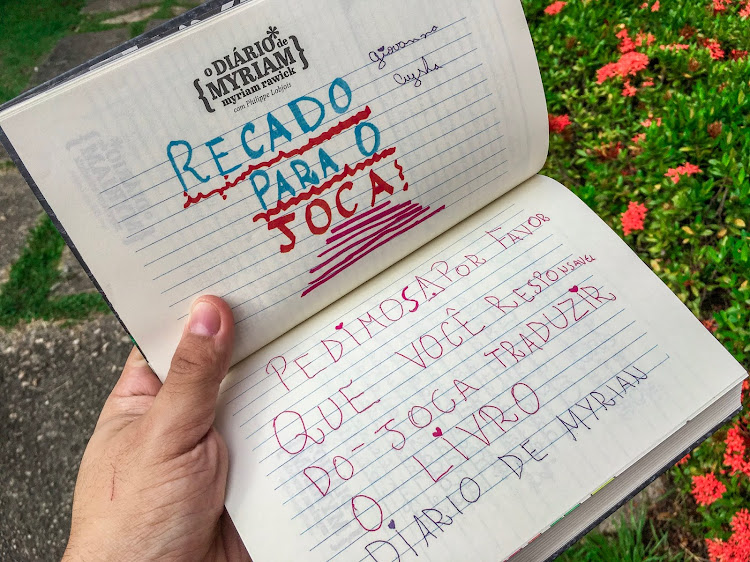 O DIÁRIO* de
{MYRIAM}
myriam rawick
com Philippe Lobjois
giovanna
RECADO
PARA O
JOCA!
PEDIMOS A POR FAVOR
QUE VOCÊ RESPONSAVEL
DO-JOCA TRADUZIR
O LIVRO
DIARIO DE MYRIAN